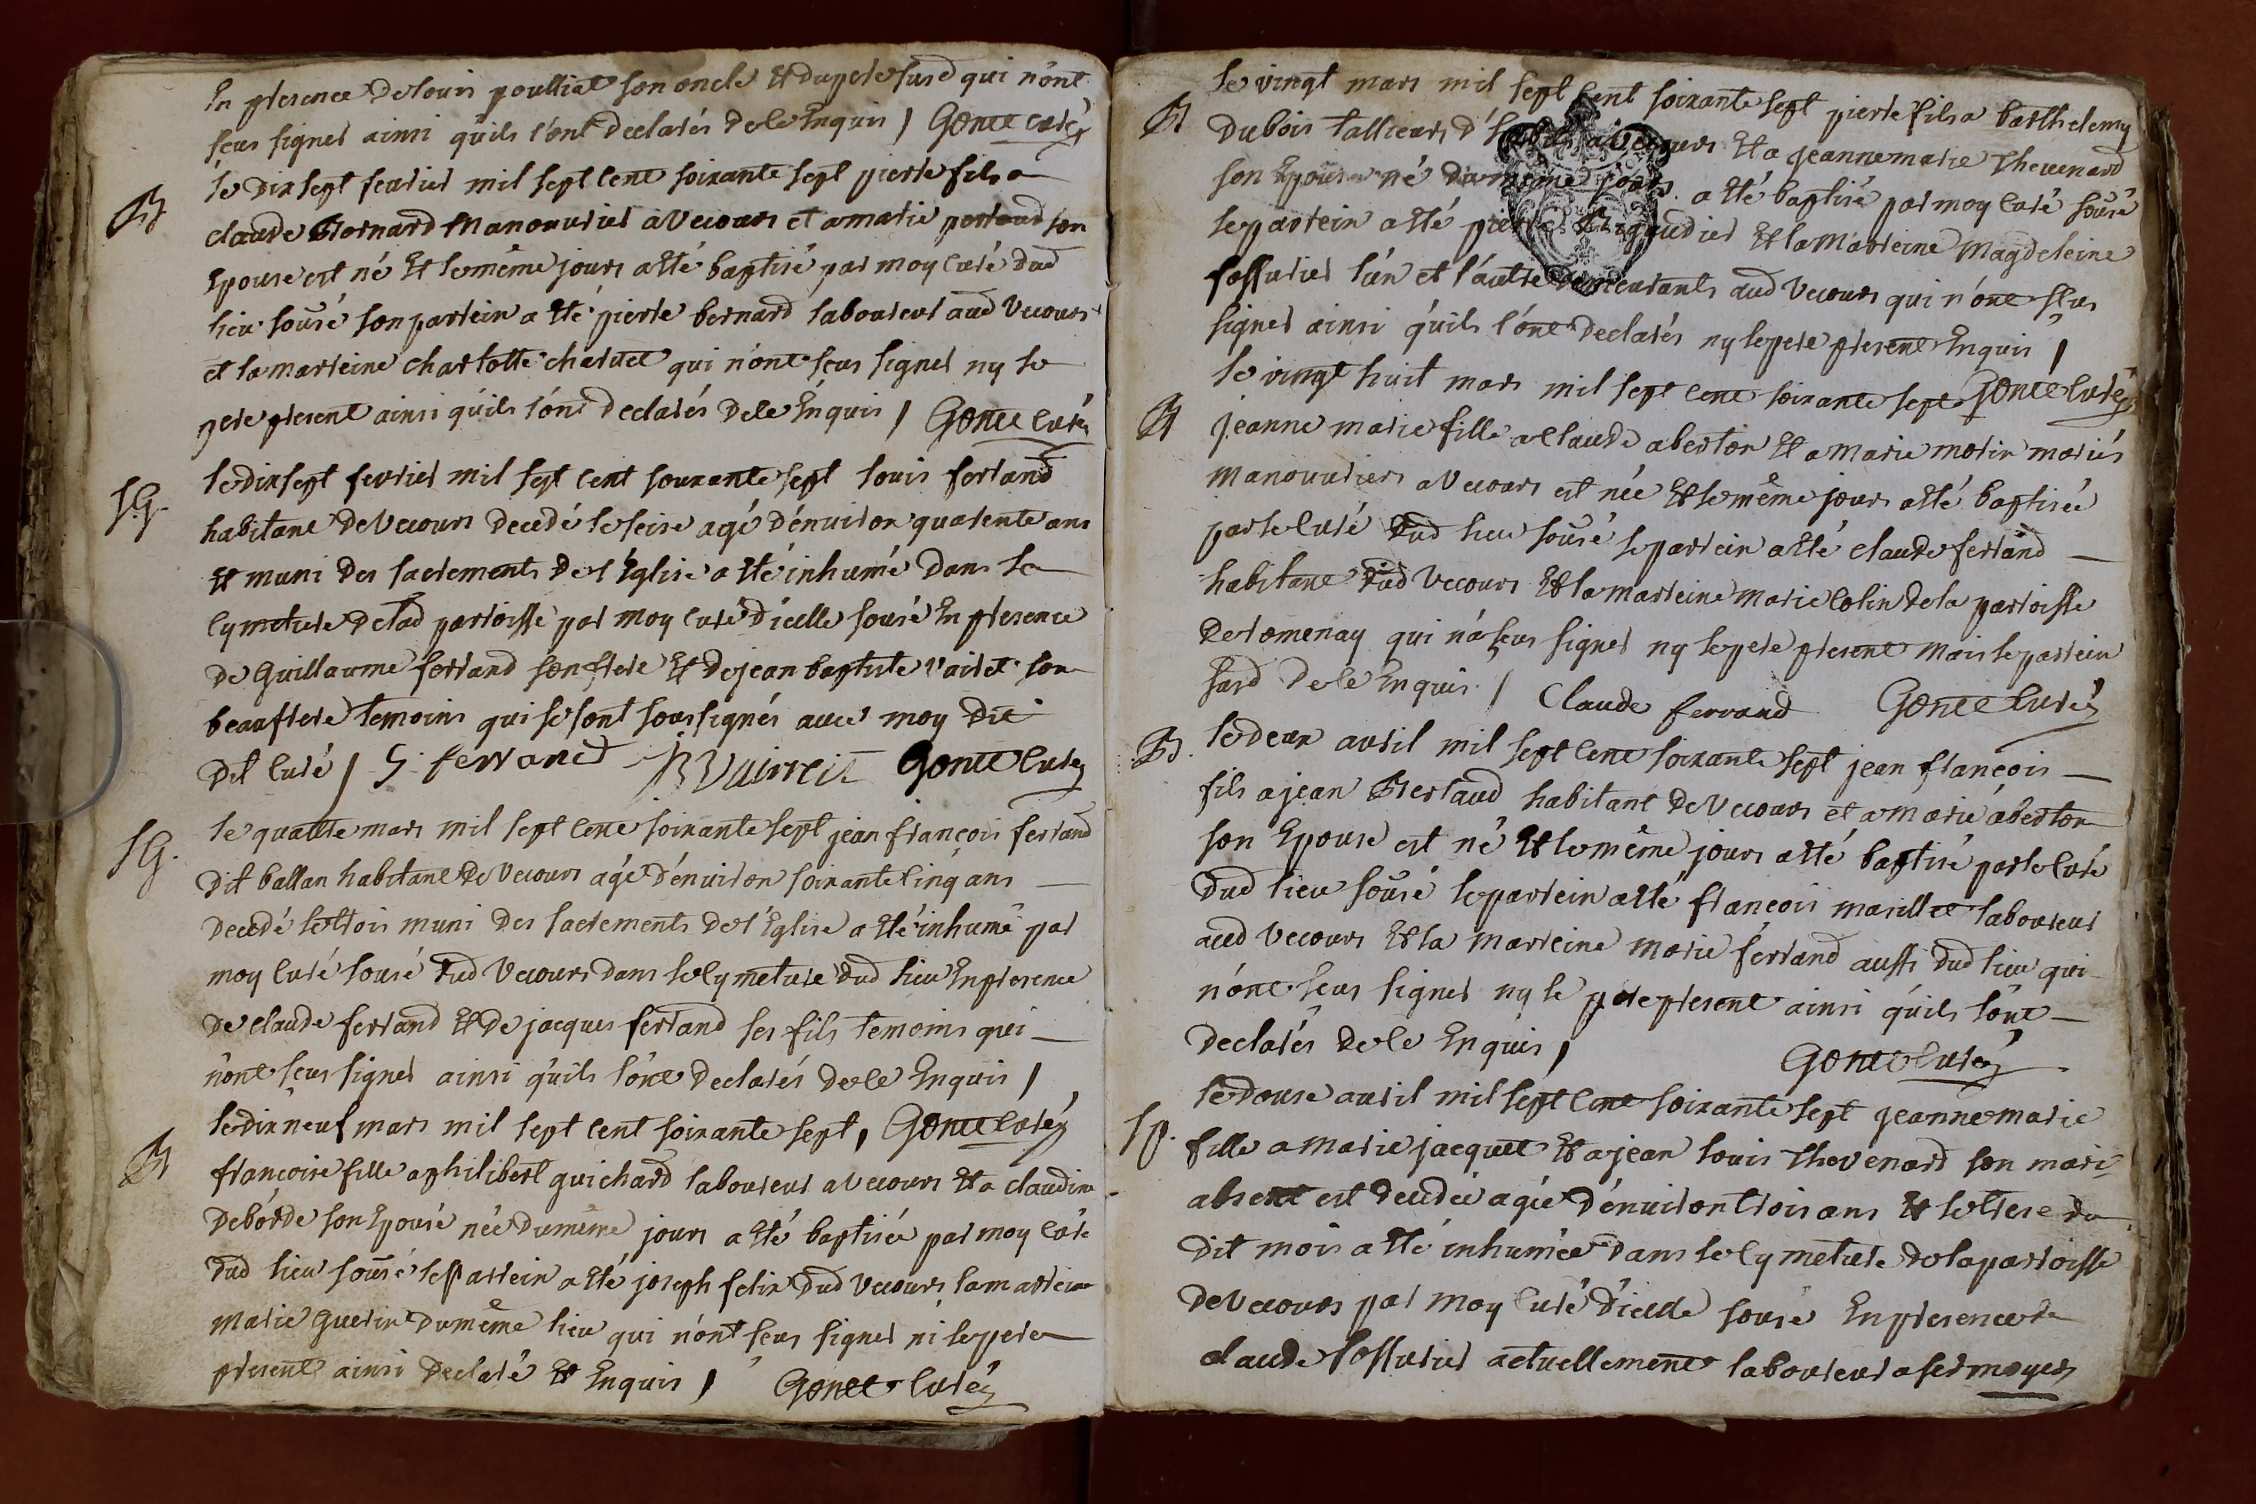 En presence de louis poulliat son oncle Et du pere susd qui n'ont
sçus signer ainsi qu'ils l'ont declarés de ce Enquis / Gonet curé
B
le dix sept fevrier mil sept cent soixante sept pierre fils a
claude Bernard Manouvrier a Vecours et a marie son
Epouse est né Et le même jours a Eté baptisé par moy curé dud
lieu sousé son parrein a Eté pierre bernard laboureur aud Vecours
et la marreine charlotte charvet qui n'ont sçus signer ny le
pere present ainsi qu'ils l'ont declarés de ce Enquis / Gonet curé
S.G.
le dix sept fevrier mil sept cent soixante sept louis ferrand
habitant de Vecours decedé le seise agé d'environ quarente ans
Et muni des sacrements de l'Eglise a Eté inhumé dans le
cymetiere de lad parroisse par moy curé d'icelle sousé En presence
de Guillaume ferrand son frere Et de jean baptiste vairet son
beaufrere temoins qui se sont soussignés avec moy dit
dit curé / G. ferrand JB Vairret Gonet curé
S.G.
le quattre mars mil sept cent soixante sept jean françois ferrand
dit ballan habitant de Vecours agé d'environ soixante cinq ans
decedé le trois muni des sacrements de l'Eglise a Eté inhumé par
moy curé sousé dud Vecours dans le cymetiere dud lieu En presence
de claude ferrand Et de jacques ferrand ses fils temoins qui
n'ont sçus signer ainsi qu'ils l'ont declarés de ce Enquis /
le dix neuf mars mil sept cent soixante sept, Gonet curé
B
françoise fille a philibert guichard laboureur a Vecours Et a claudine
deborde son Epouse née du même jours a Eté baptisée par moy curé
dud lieu sousé le parrein a Eté joseph felix dud Vecours la marreine
marie guerin du même lieu qui n'ont sçus signer ni le pere
present ainsi declaré Et Enquis / Gonet curé
le vingt mars mil sept cent soixante sept pierre fils a barthelemy
B
dubois tallieurs d'habits a Vecours Et a jeanne marie Thevenard
son Epouse né du même jours a Eté baptisé par moy curé sousé
le parrein a Eté pierre Et la Marreine Magdeleine
fossurier l'un et l'autre demeurants aud Vecours qui n'ont sçus
signer ainsi qu'ils l'ont declarés ny le pere present Enquis /
le vingt huit mars mil sept cent soixante sept Gonet curé
B
jeanne marie fille a claude aberton Et a marie morin mariés
manouvriers a Vecours est née Et le même jours a Eté baptisée
par le curé dud lieu sousé le parrein a Eté claude ferrand
habitant dud Vecours Et la marreine marie colin de la parroisse
de romenay qui n'a sçus signer ny le pere present mais le parrein
susd de ce Enquis / Claude ferrand Gonet curé
B.
le deux avril mil sept cent soixante sept jean françois
fils a jean Bertaud habitant de Vecours et a marie aberton
son Epouse est né Et le même jours a Eté baptisé par le curé
dud lieu sousé le parrein a Eté françois marillet laboureur
aud Vecours Et la marreine marie ferrand aussi dud lieu qui
n'ont sçus signer ny le pere present ainsi qu'ils l'ont
declarés de ce Enquis / Gonet curé
le douse avril mil sept cent soixante sept jeanne marie
S.P.
fille a marie jacquet Et a jean louis Thevenard son mari
absent est decedée agée d'environ trois ans Et le trese du
dit mois a Eté inhumée dans le cymetiere de la parroisse
de Vecours par moy curé d'icelle sousé En presence de
claude fossurier actuellement laboureur a fermoyer